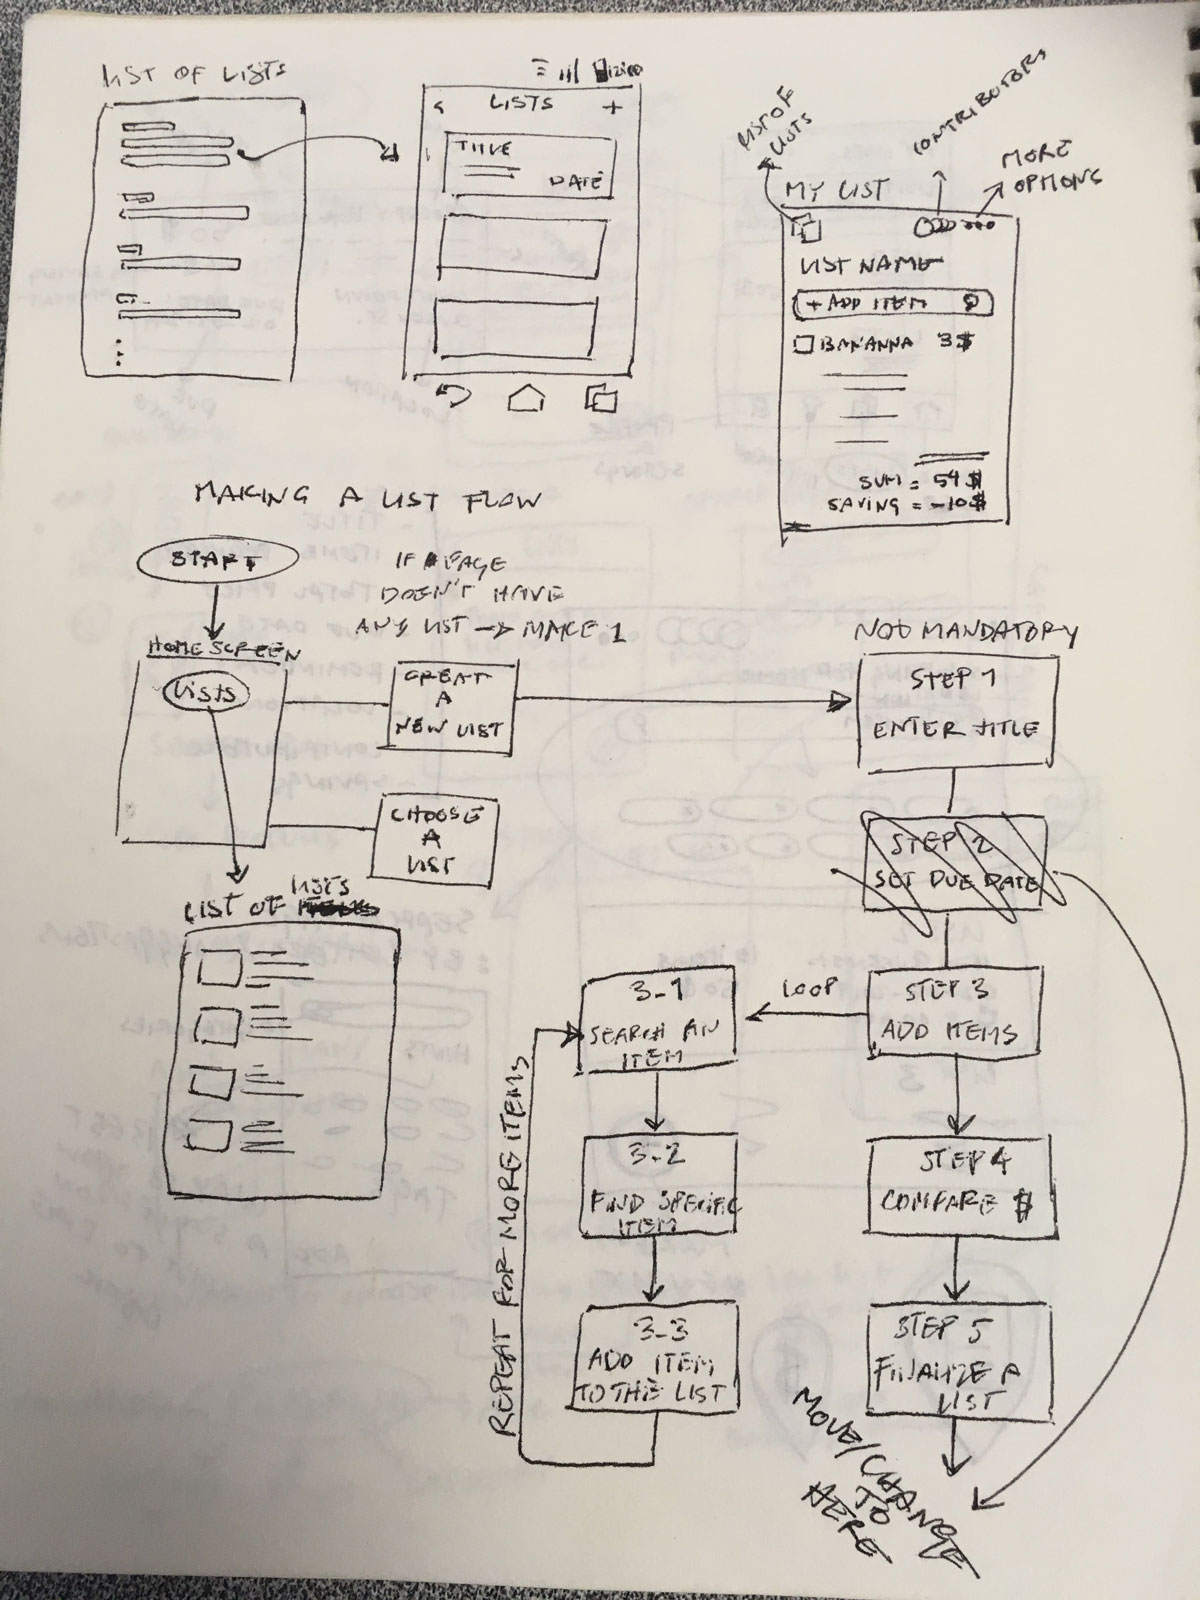 LIST OF LISTS
< LISTS +
TITLE
DATE
LIST OF
LISTS
CONTRIBUTORS
MORE
OPTIONS
MY LIST
LIST NAME
+ ADD ITEM
BANANNA 3$
SUM = 54$
SAVING = -10$
MAKING A LIST FLOW
START
IF PAGE
DOEN'T HAVE
ANY LIST → MAKE 1
HOME SCREEN
Lists
CREAT
A
NEW LIST
CHOOSE
A
LIST
LIST OF LISTS
NOT MANDATORY
STEP 1
ENTER TITLE
STEP 2
SET DUE DATE
STEP 3
ADD ITEMS
LOOP
3-1
SEARCH AN
ITEM
3-2
FIND SPECIFIC
ITEM
3-3
ADD ITEM
TO THE LIST
REPEAT FOR MORE ITEMS
STEP 4
COMPARE $
STEP 5
FINALIZE A
LIST
MOVE/CHANGE
TO
HERE